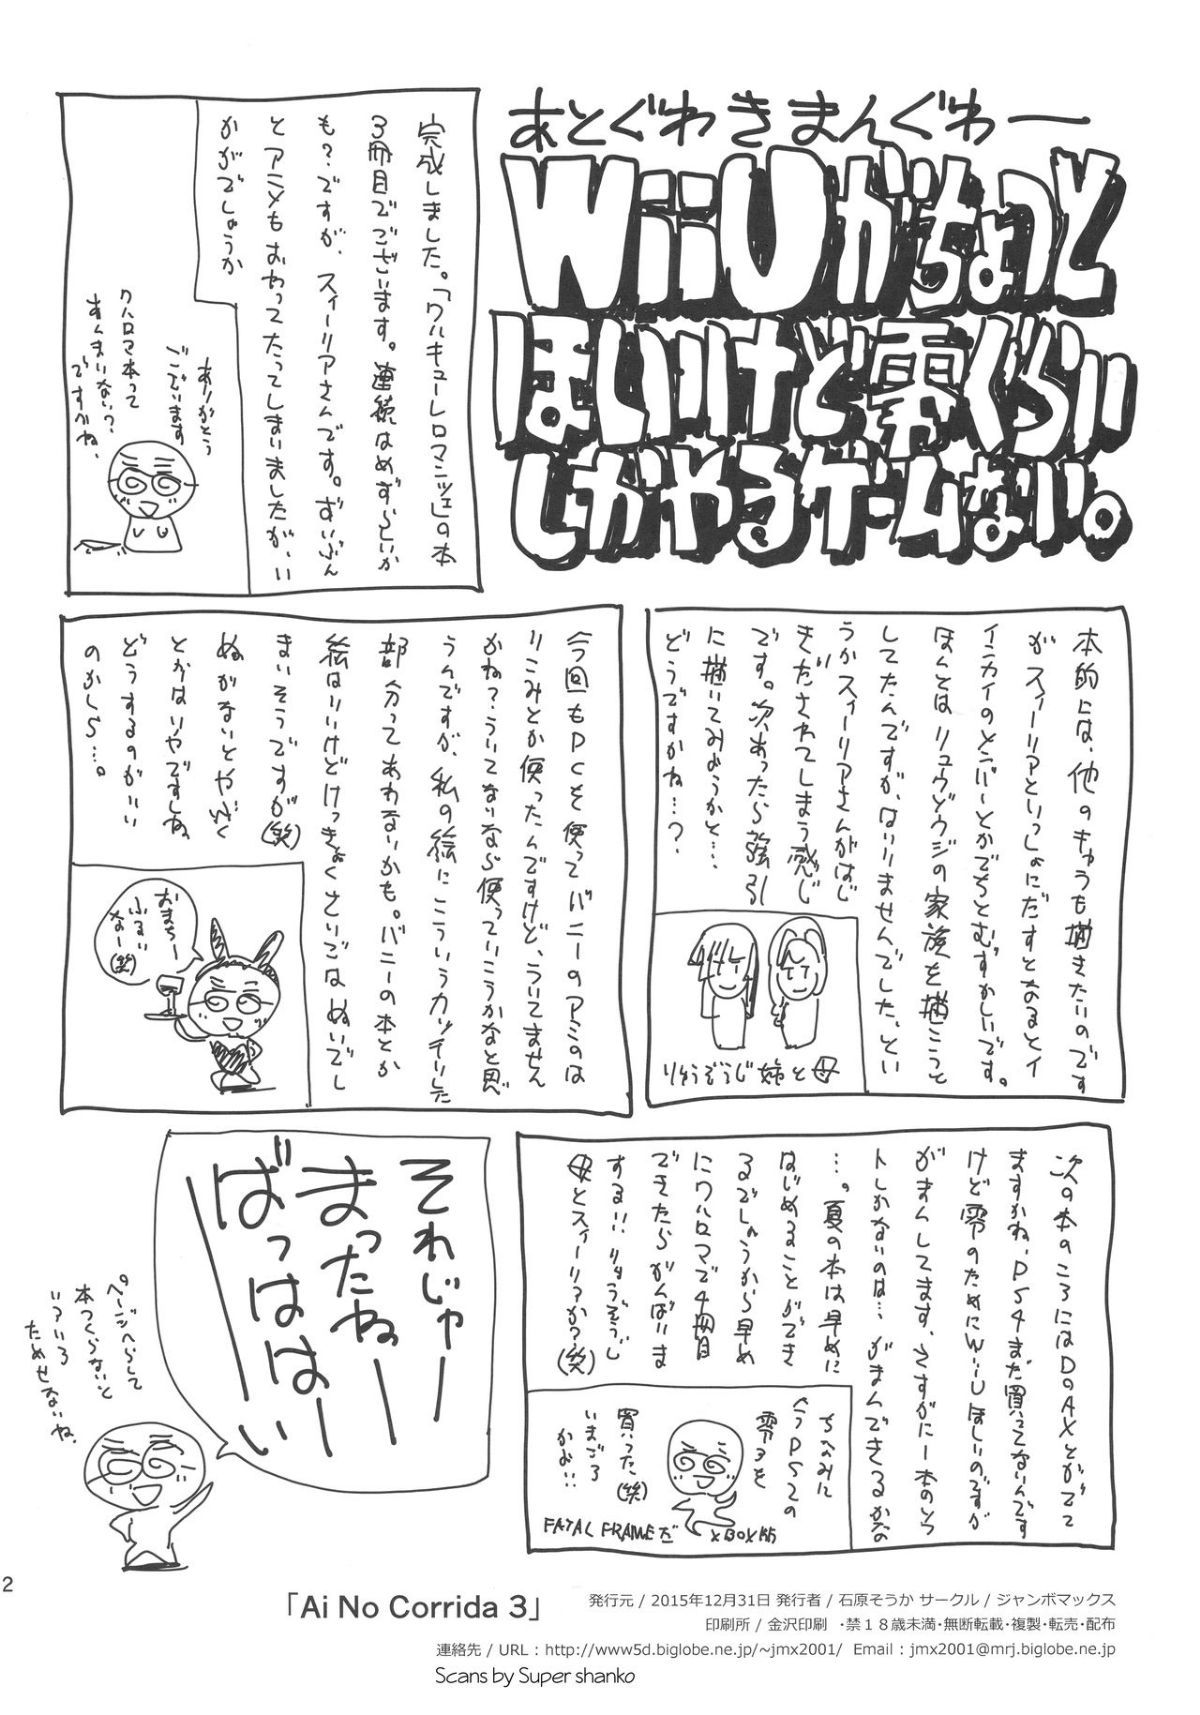 あとぐわきまんぐわー
WiiUがちょっと
ほしいけど零ぐらい
しかやるゲームない。
完成しました。「ワルキューレロマンツェ」の本
3冊目でございます。連続はめずらしいか
も?ですが、スィーリアさんです。ずいぶん
とアニメもおわってたってしまいましたが、い
かがでしょうか
ありがとう
ございます
ワルロマ本って
すんまいない?
ですかね、
本的には、他のきゃらも描きたいのです
がスィーリアといっしょにだすとなるとイ
インカイのメンバーとかでちとむずかしいです。
ほんとはリュウゾウジの家族を描こうと
してたんですが、はいりませんでした。とい
うかスィーリアさんがはじ
きだされてしまう感じ
です。次あったら強引
に描いてみようかと…
どうですかね…?
りゅうぞうじ姉と母
今回もPCを使ってバニーのアミのは
りこみとか使ったんですけど、ういてません
かね?ういてないなら使っていこうかなと思
うんですが、私の絵にこういうカッチリした
部分ってあわないかも。バニーの本とか
絵はいいけどけっきょくさいごはぬいでし
まいそうですが(笑)
ぬがないとやぶく
とかはいやですしね
どうするのがいい
のかしら…。
おまちー
ふるい
なー(笑)
次の本のころにはDOAXとかでて
ますかね、PS4まだ買ってないんです
けど零のためにWiiUほしいのですが
がまんしてます、さすがに一本のソフ
トしかないのは…がまんできるかな
…。夏の本は早めに
はじめることができ
るでしょうから早め
にワルロマで4冊目
できたらがんばいま
する!!りゅうぞうじ
母とスィーリアか?(笑)
ちなみに
今PS2の
零3を
買った(笑)
いまごろ
かよ!!
FATAL FRAMEだ
XBOX版
それじゃー
まったねー
ばっはは〜い
ページへらして
本つくらないと
いろいろ
ためせないね、
2
「Ai No Corrida 3」
発行元 / 2015年12月31日 発行者 / 石原そうか サークル / ジャンボマックス
印刷所 / 金沢印刷 ・禁18歳未満・無断転載・複製・転売・配布
連絡先 / URL : http://www5d.biglobe.ne.jp/~jmx2001/ Email : jmx2001@mrj.biglobe.ne.jp
Scans by Super shanko